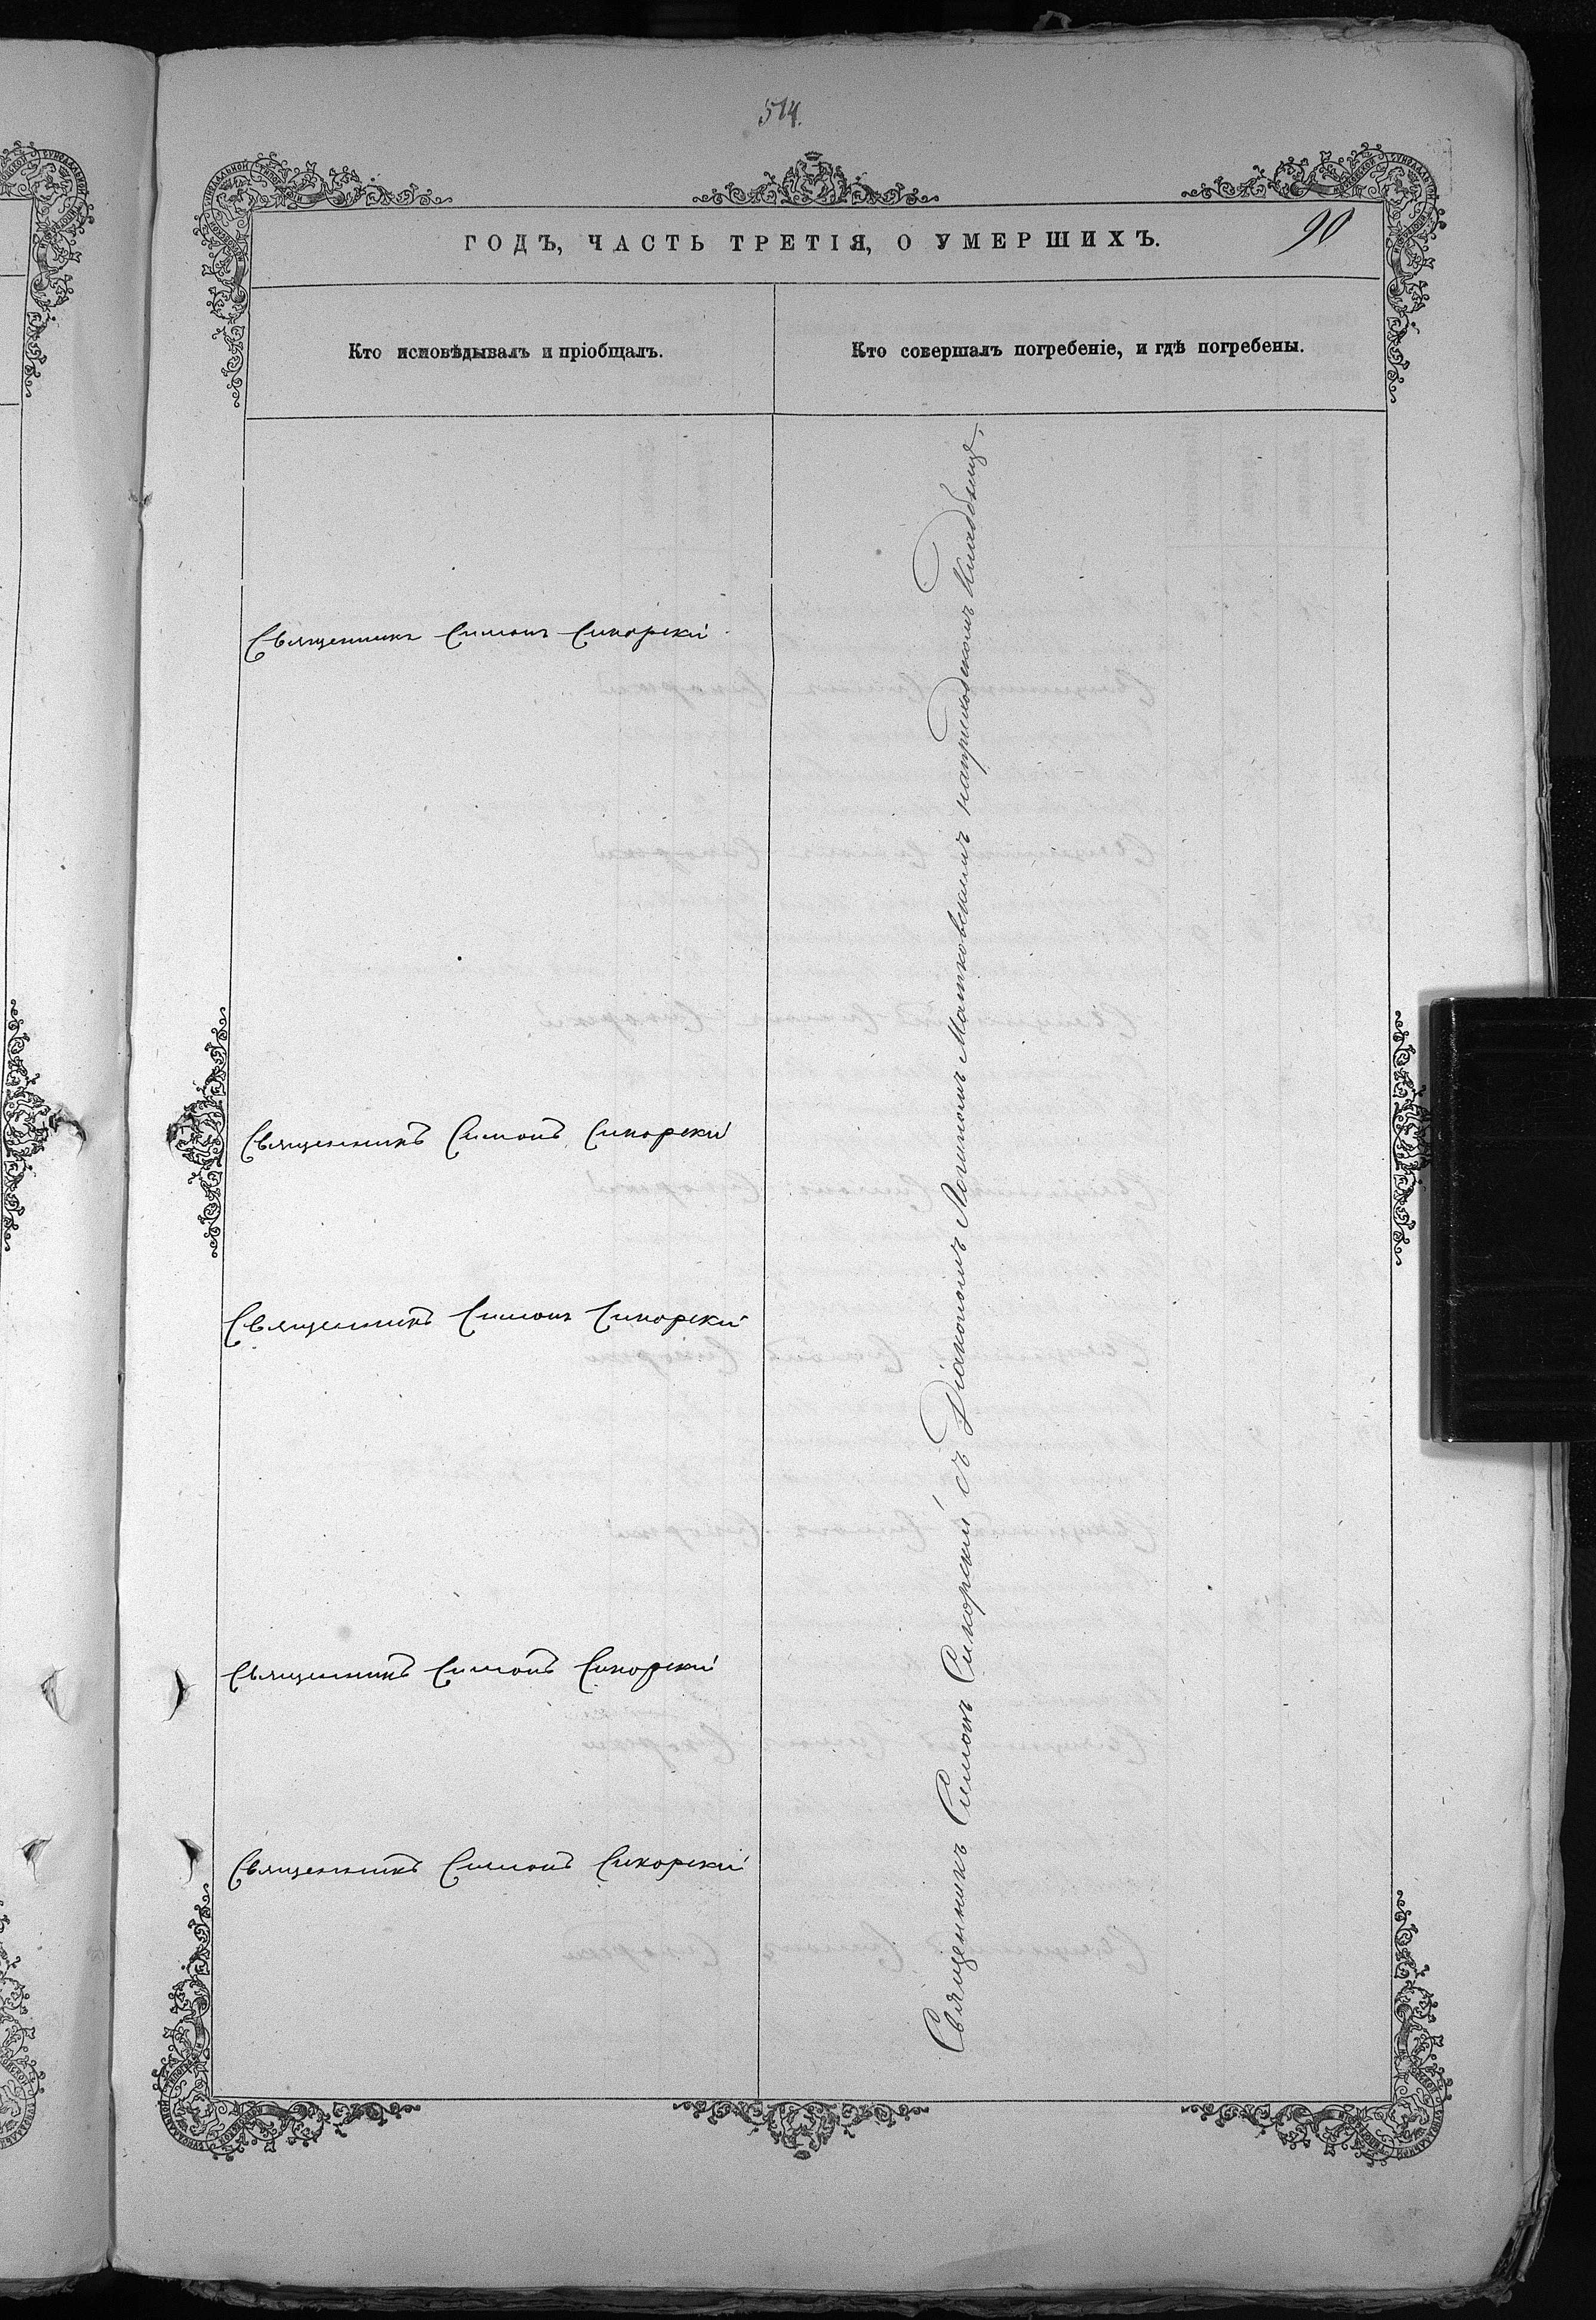 514.
ГОДЪ, ЧАСТЬ ТРЕТІЯ, О УМЕРШИХЪ.
90
Кто исповѣдывалъ и пріобщалъ.
Кто совершалъ погребеніе, и гдѣ погребены.
Священникъ Симонъ Сикорскій
Священникъ Симонъ Сикорскій
Священникъ Симонъ Сикорскій
Священникъ Симонъ Сикорскій
Священникъ Симонъ Сикорскій
Священникъ Симонъ Сикорскій съ Діакономъ Логиномъ Матковскимъ наприходскомъ Кладбищѣ.